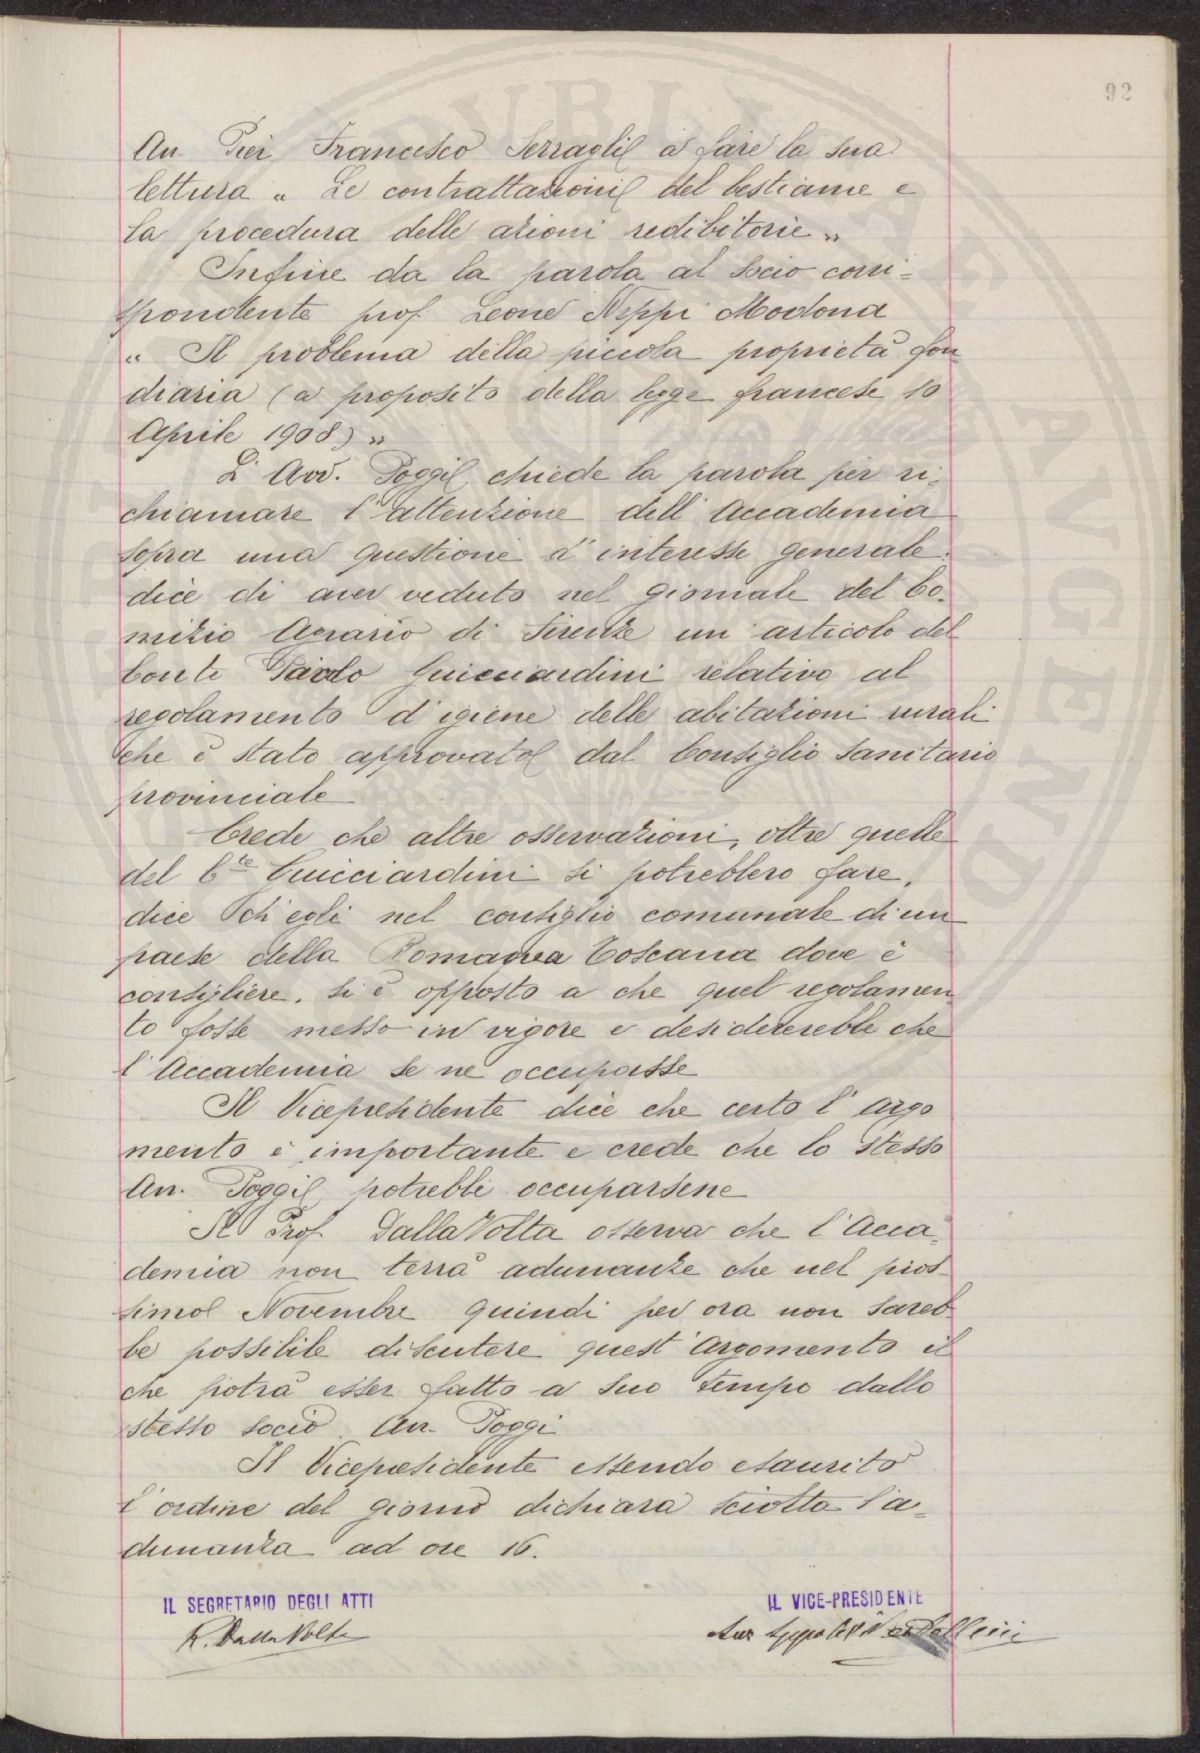 92
Avv. Pier Francesco Serragli a fare la sua
lettura „ Le contrattazioni del bestiame e
la procedura delle azioni redibitorie „
Infine da la parola al Socio corri-
spondente prof Leone Neppi Modona
„ Il problema della piccola proprietà fon
diaria (a proposito della legge francese 10
Aprile 1908) „
L' Avv. Poggi, chiede la parola per ri-
chiamare l'attenzione dell'Accademia
sopra una questione d'interesse generale.
dice di aver veduto nel giornale del Co-
mizio Agrario di Firenze un articolo del
Conte Paolo Guicciardini relativo al
regolamento d'igiene delle abitazioni rurali
che è stato approvato dal Consiglio Sanitario
provinciale
Crede che altre osservazioni, oltre quelle
del Cte Guicciardini si potrebbero fare,
dice ch'egli nel consiglio comunale di un
paese della Romagna Toscana dove è
consigliere, si è opposto a che quel regolamen
to fosse messo in vigore e desidererebbe che
l'Accademia se ne occupasse
Il Vicepresidente dice che certo l'argo
mento è importante e crede che lo stesso
Avv. Poggi potrebbe occuparsene
Il Prof. Dalla Volta osserva che l'Acca-
demia non terrà adunanze che nel pros-
simo Novembre quindi per ora non sareb
be possibile discutere quest'argomento il
che potrà esser fatto a suo tempo dallo
stesso socio Avv. Poggi
Il Vicepresidente essendo esaurito
l'ordine del giorno dichiara sciolta l'a-
dunanza ad ore 16.
IL SEGRETARIO DEGLI ATTI
IL VICE-PRESIDENTE
R. Dalla Volta